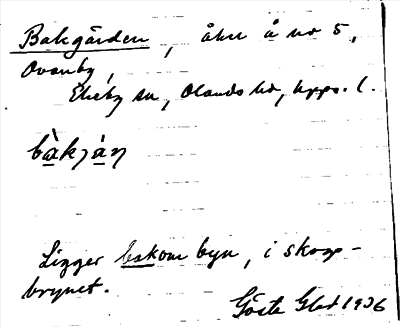 Bakgården, åker å no 5,
Ovanby,
Ekeby sn, Olands hd, Upps. l.
bàkjàɳ
Ligger bakom byn, i skogs-
brynet.
Gösta Glad 1936